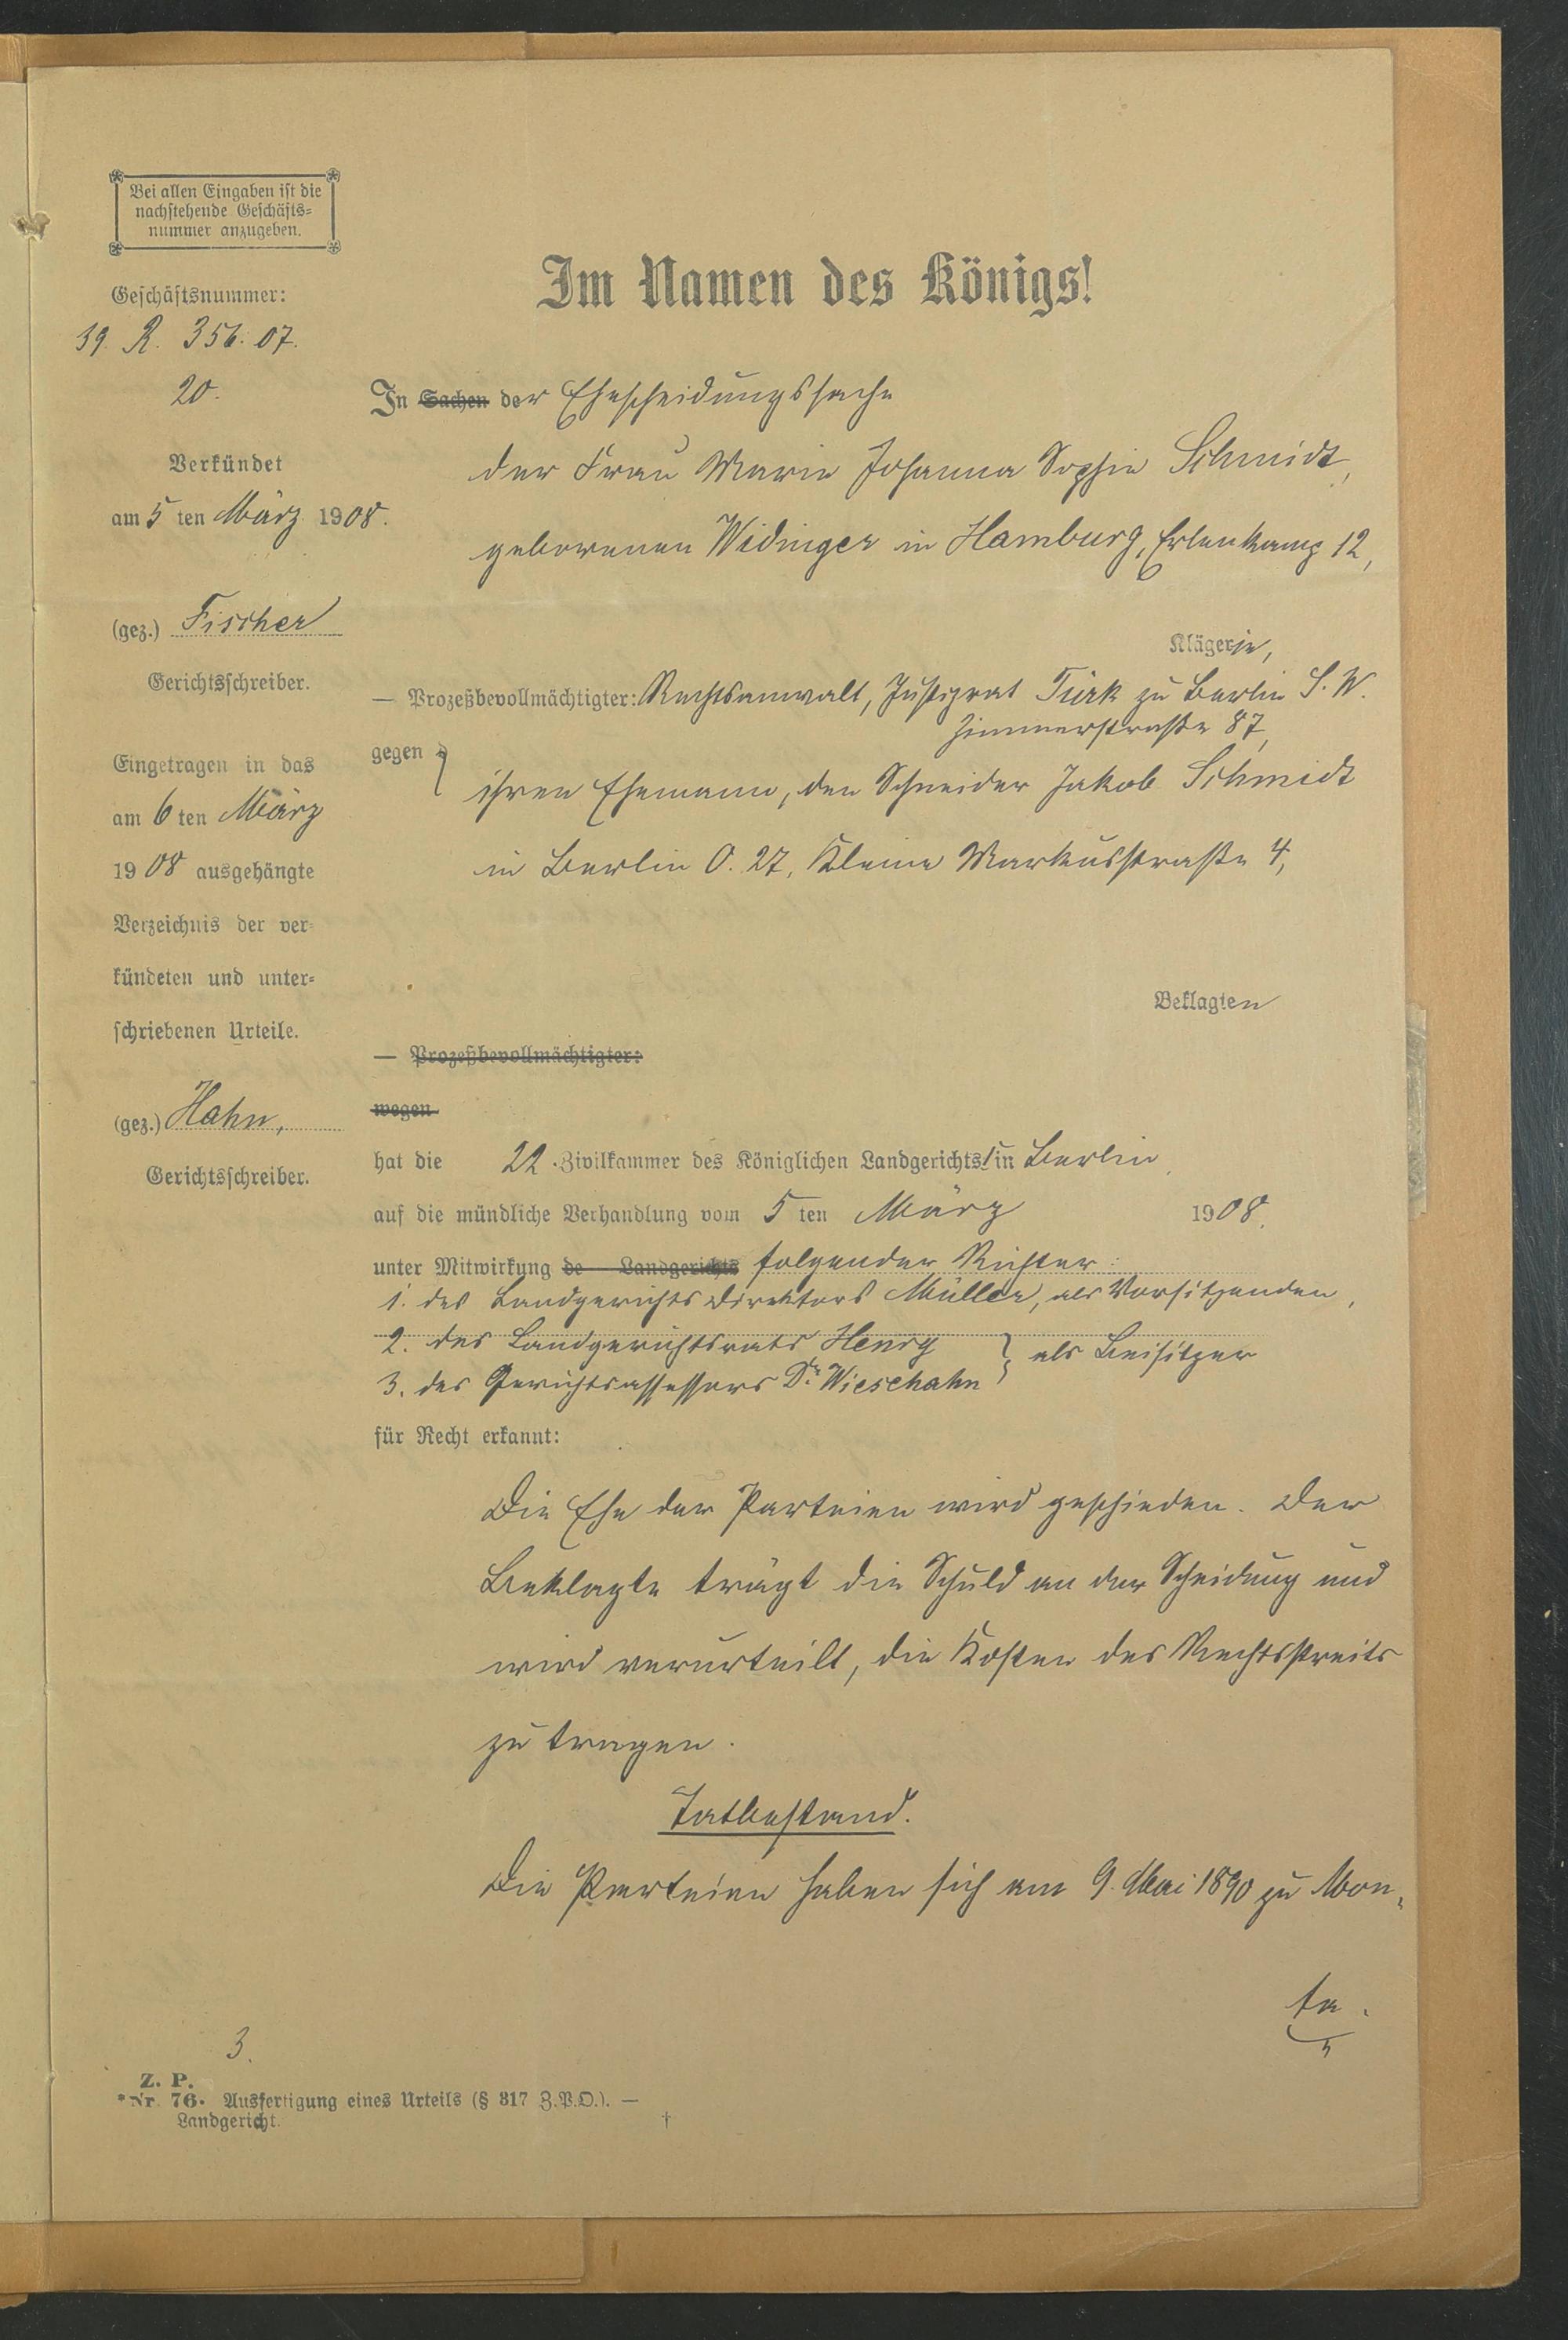 Bei allen Eingaben ist die
nachstehende Geschäfts-
nummer anzugeben.
Geschäftsnummer:
39. R. 356. 07.
20.
Verkündet
am 5 ten März 1908.
(gez.) Fischer
Gerichtsschreiber.
Eingetragen in das
am 6 ten März
1908 ausgehängte
Verzeichnis der ver-
kündeten und unter-
schriebenen Urteile.
(gez.) Hahn,
Gerichtsschreiber.
Im Namen des Königs!
In Sachen der Ehescheidungssache
der Frau Marie Johanna Sophie Schmidt,
geborenen Widinger in Hamburg, Erlenkamp 12,
Klägerin,
— Prozeßbevollmächtigter: Rechtsanwalt, Justizrat Türk zu Berlin S. W.
Zimmerstraße 87,
gegen
ihren Ehemann, den Schneider Jakob Schmidt
in Berlin O. 27, Kleine Markusstraße 4,
Beklagten
— Prozeßbevollmächtigter:
wegen
hat die 22. Zivilkammer des Königlichen Landgerichts I in Berlin
auf die mündliche Verhandlung vom 5 ten März 1908.
unter Mitwirkung de Landgerichts folgender Richter:
1. des Landgerichtsdirektors Müller, als Vorsitzenden,
2. des Landgerichtsrats Henry } als Beisitzer
3. des Gerichtsassessors Dr. Wieschahn
für Recht erkannt:
Die Ehe der Parteien wird geschieden. Der
Beklagte trägt die Schuld an der Scheidung und
wird verurteilt, die Kosten des Rechtsstreits
zu tragen.
Tatbestand.
Die Parteien haben sich am 9. Mai 1890 zu Mon-
te.
3.
Z. P.
*Nr. 76. Ausfertigung eines Urteils (§ 317 Z.P.O.). —
Landgericht. †